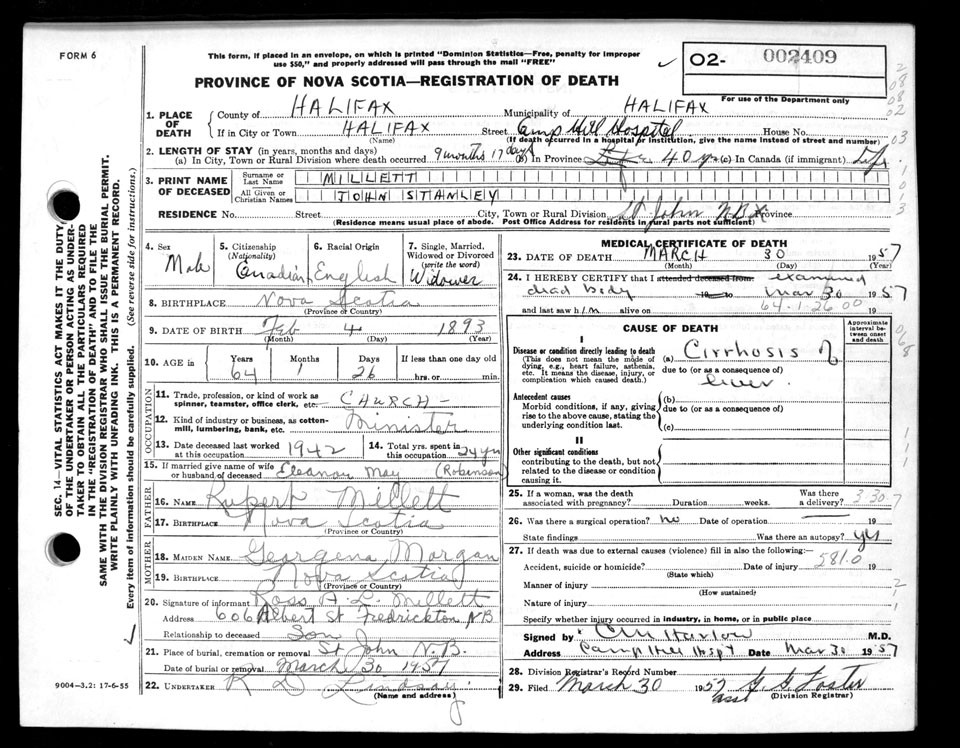 FORM 6
This form, if placed in an envelope, on which is printed "Dominion Statistics—Free, penalty for improper
use $50," and properly addressed will pass through the mail "FREE"
PROVINCE OF NOVA SCOTIA—REGISTRATION OF DEATH
O2- 002409
For use of the Department only
1. PLACE OF DEATH
County of HALIFAX Municipality of HALIFAX
If in City or Town HALIFAX Street Camp Hill Hospital House No.
(Name) (If death occurred in a hospital or institution, give the name instead of street and number)
2. LENGTH OF STAY (in years, months and days)
(a) In City, Town or Rural Division where death occurred 9 months 17 days (b) In Province 40 yrs (c) In Canada (if immigrant) Life
3. PRINT NAME OF DECEASED
Surname or Last Name MILLETT
All Given or Christian Names JOHN STANLEY
RESIDENCE No. Street City, Town or Rural Division St John N.B. Province
(Residence means usual place of abode. Post Office Address for residents in rural parts not sufficient)
4. Sex Male
5. Citizenship (Nationality) Canadian
6. Racial Origin English
7. Single, Married, Widowed or Divorced (write the word) Widower
8. BIRTHPLACE Nova Scotia
(Province or Country)
9. DATE OF BIRTH Feb 4 1893
(Month) (Day) (Year)
10. AGE in Years 64 Months 1 Days 26 If less than one day old
hrs. or min.
OCCUPATION
11. Trade, profession, or kind of work as
spinner, teamster, office clerk, etc. CHURCH -
12. Kind of industry or business, as cotton-
mill, lumbering, bank, etc. Minister
13. Date deceased last worked at this occupation 1942
14. Total yrs. spent in this occupation 24 yrs
15. If married give name of wife
or husband of deceased Eleanor May (Robinson)
FATHER
16. NAME Rupert Millett
17. BIRTHPLACE Nova Scotia
(Province or Country)
MOTHER
18. MAIDEN NAME Georgena Morgan
19. BIRTHPLACE Nova Scotia
(Province or Country)
20. Signature of informant Ross A. L. Millett
Address 606 Albert St Fredrickton NB
Relationship to deceased Son
21. Place of burial, cremation or removal St John N.B.
Date of burial or removal March 30 1957
22. UNDERTAKER Lindsay
(Name and address)
9004—3.2: 17-6-55
SEC. 14—VITAL STATISTICS ACT MAKES IT THE DUTY
OF THE UNDERTAKER OR PERSON ACTING AS UNDER-
TAKER TO OBTAIN ALL THE PARTICULARS REQUIRED
IN THE "REGISTRATION OF DEATH" AND TO FILE THE
SAME WITH THE DIVISION REGISTRAR WHO SHALL ISSUE THE BURIAL PERMIT.
WRITE PLAINLY WITH UNFADING INK. THIS IS A PERMANENT RECORD.
Every item of information should be carefully supplied. (See reverse side for instructions.)
MEDICAL CERTIFICATE OF DEATH
23. DATE OF DEATH MARCH 30 1957
(Month) (Day) (Year)
24. I HEREBY CERTIFY that I attended deceased from examined
dead body to Mar 30 1957
and last saw him alive on 64.1.26.00 19
CAUSE OF DEATH
Approximate interval between onset and death
I
Disease or condition directly leading to death
(This does not mean the mode of
dying, e.g., heart failure, asthenia,
etc. It means the disease, injury, or
complication which caused death.)
(a) Cirrhosis of
due to (or as a consequence of)
liver.
Antecedent causes
Morbid conditions, if any, giving
rise to the above cause, stating the
underlying condition last.
(b)
due to (or as a consequence of)
(c)
II
Other significant conditions
contributing to the death, but not
related to the disease or condition
causing it.
25. If a woman, was the death
associated with pregnancy? Duration weeks. Was there a delivery? 3.30.7
26. Was there a surgical operation? no Date of operation 19
State findings Was there an autopsy? yes
27. If death was due to external causes (violence) fill in also the following:—
Accident, suicide or homicide? Date of injury 581.0 19
(State which)
Manner of injury
(How sustained)
Nature of injury
Specify whether injury occurred in industry, in home, or in public place
Signed by C M Harlow M.D.
Address Camp Hill Hospt Date Mar 30 1957
28. Division Registrar's Record Number
29. Filed March 30 1957 G. G. Foster
asst (Division Registrar)